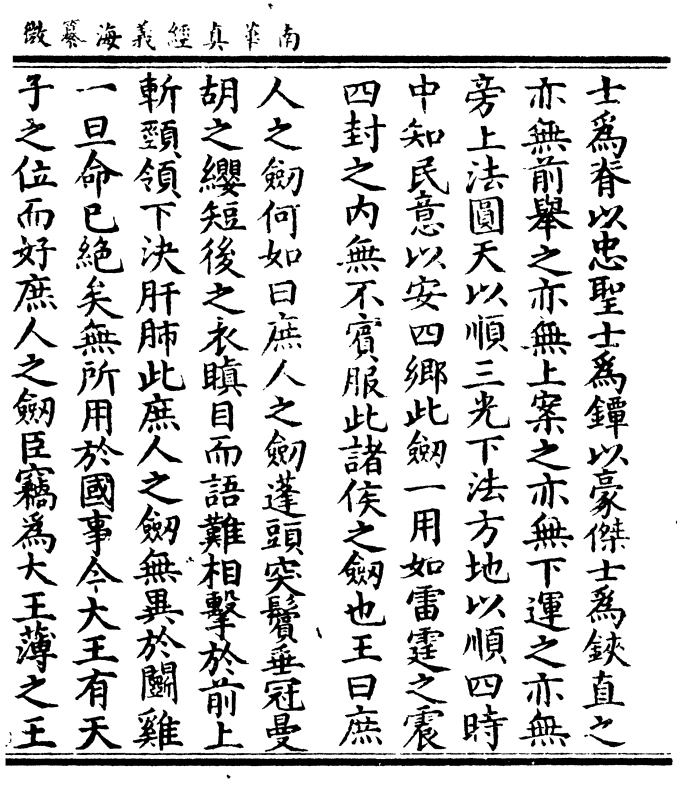 南華真經義海纂微
士為脊以忠聖士為鐔以豪傑士為鋏直之
亦無前舉之亦無上案之亦無下運之亦無
旁上法圓天以順三光下法方地以順四時
中知民意以安四鄉此劒一用如雷霆之震
四封之内無不賓服此諸侯之劒也王曰庶
人之劒何如曰庶人之劒蓬頭突鬢垂冠曼
胡之纓短後之衣瞋目而語難相擊於前上
斬頸領下決肝肺此庶人之劒無異於鬬雞
一旦命已絶矣無所用於國事今大王有天
子之位而好庶人之劒臣竊為大王薄之王